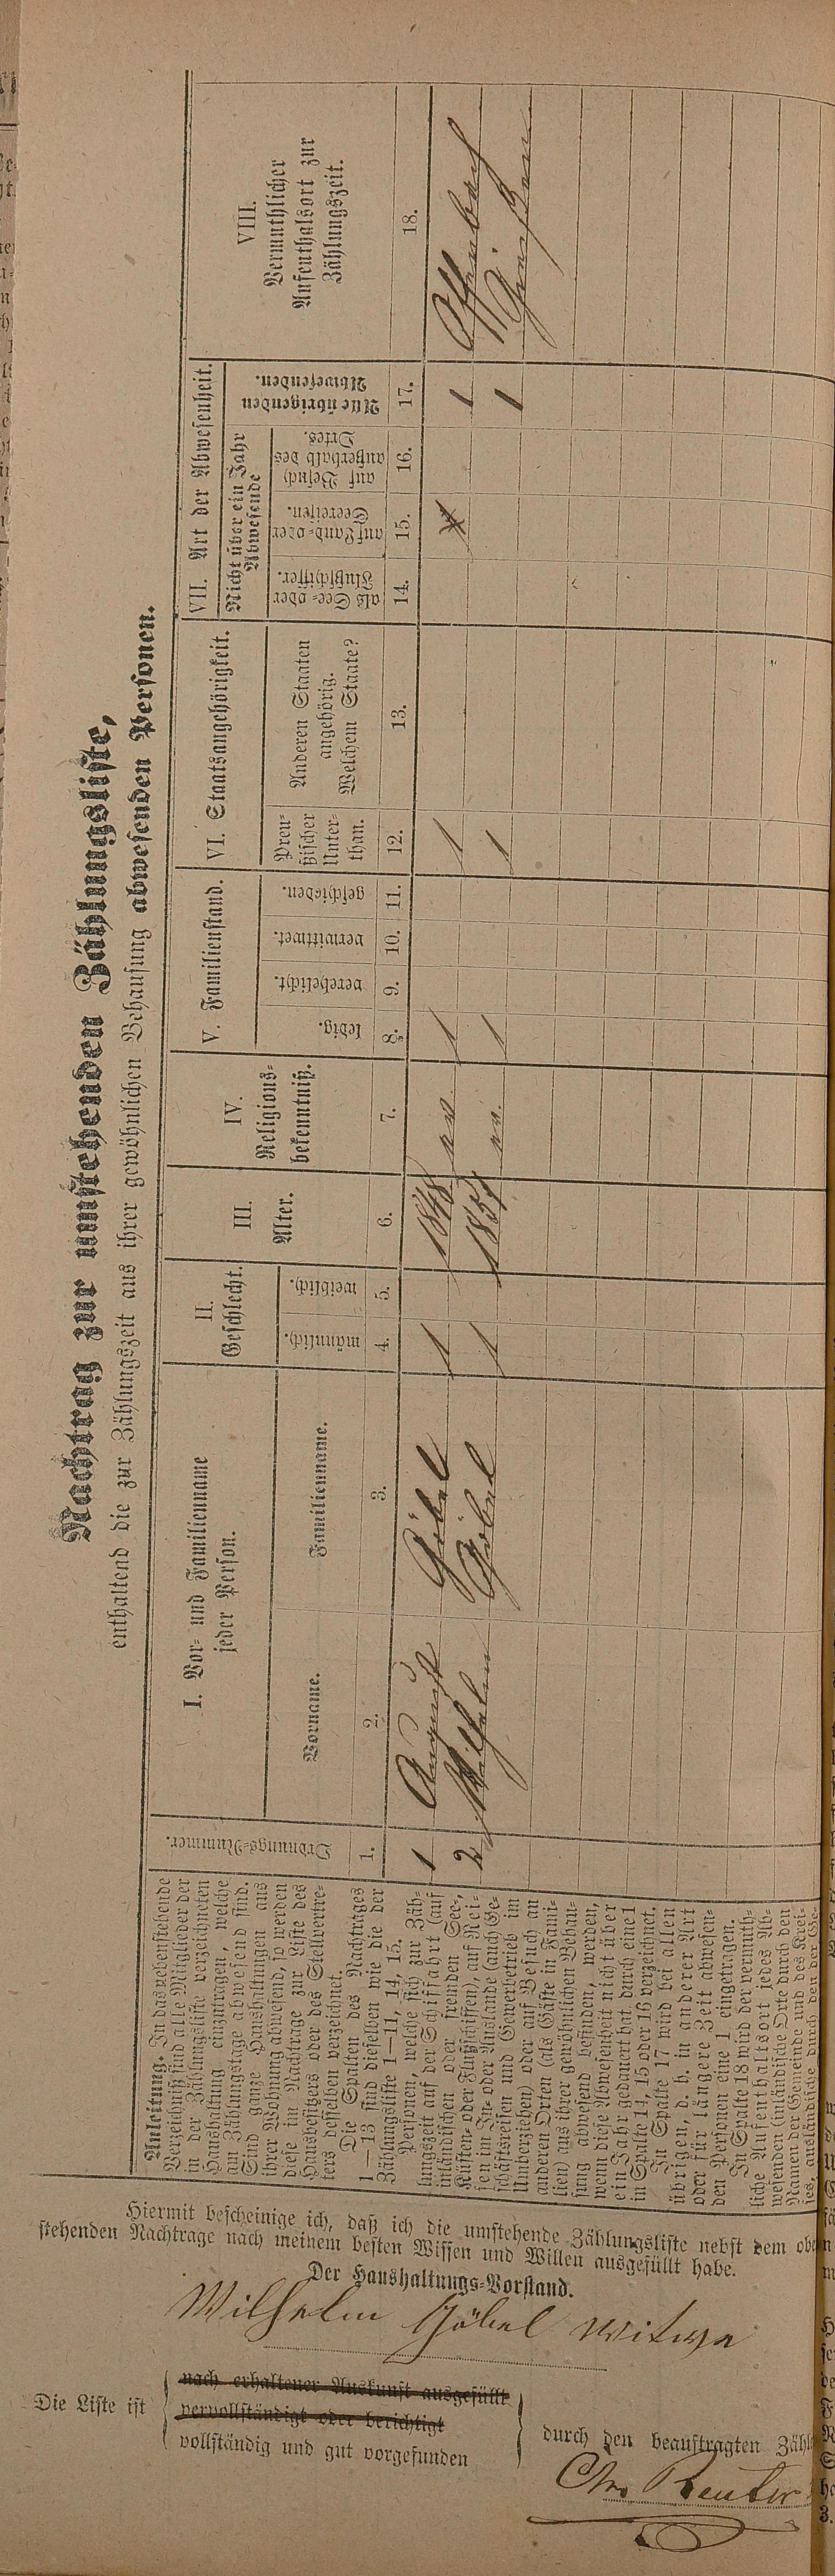 Nachtrag zur umstehenden Zählungsliste,
enthaltend die zur Zählungszeit aus ihrer gewöhnlichen Behausung abwesenden Personen.
Anleitung. In das nebenstehende
Verzeichniß sind alle Mitglieder der
in der Zählungsliste verzeichneten
Haushaltung einzutragen, welche
am Zählungstage abwesend sind.
Sind ganze Haushaltungen aus
ihrer Wohnung abwesend, so werden
diese im Nachtrage zur Liste des
Hausbesitzers oder des Stellvertre-
ters desselben verzeichnet.
Die Spalten des Nachtrages
1—13 sind dieselben wie die der
Zählungsliste 1—11, 14, 15.
Personen, welche sich zur Zäh-
lungszeit auf der Schiffahrt (auf
inländischen oder fremden See-,
Küsten- oder Flußschiffen), auf Rei-
sen im In- oder Auslande (auch Ge-
schäftsreisen und Gewerbetrieb im
Umherziehen) oder auf Besuch an
anderen Orten (als Gäste in Fami-
lien) aus ihrer gewöhnlichen Behau-
sung abwesend befinden, werden,
wenn diese Abwesenheit nicht über
ein Jahr gedauert hat, durch eine 1
in Spalte 14, 15 oder 16 verzeichnet.
In Spalte 17 wird bei allen
übrigen, d. h. in anderer Art
oder für längere Zeit abwesen-
den Personen eine 1 eingetragen.
In Spalte 18 wird der vermuth-
liche Aufenthaltsort jedes Ab-
wesenden (inländische Orte durch den
Namen der Gemeinde und des Krei-
ses, ausländische durch den der Ge-
Ordnungs-Nummer.
I. Vor- und Familienname
jeder Person.
Vorname.
Familienname.
II.
Geschlecht.
männlich.
weiblich.
III.
Alter.
IV.
Religions-
bekenntniß.
V. Familienstand.
ledig.
verehelicht.
verwittwet.
geschieden.
VI. Staatsangehörigkeit.
Preu-
ßischer
Unter-
than.
Anderen Staaten
angehörig.
Welchem Staate?
VII. Art der Abwesenheit.
Nicht über ein Jahr
Abwesende
als See- oder
Flußschiffer.
auf Land- oder
Seereisen.
auf Besuch
außerhalb des
Ortes.
Alle übrigen
Abwesenden.
VIII.
Vermuthlicher
Aufenthaltsort zur
Zählungszeit.
1. 2. 3. 4. 5. 6. 7. 8. 9. 10. 11. 12. 13. 14. 15. 16. 17. 18.
1 August Göbel 1 1848 ev. 1 1 1 Offenbach
2 Wilhelm Göbel 1 1851 ev. 1 1 1 Gießen
Hiermit bescheinige ich, daß ich die umstehende Zählungsliste nebst dem oben
stehenden Nachtrage nach meinem besten Wissen und Willen ausgefüllt habe.
Der Haushaltungs-Vorstand.
Wilhelm Göbel Witwe
Die Liste ist
nach erhaltener Auskunft ausgefüllt
vervollständigt oder berichtigt
vollständig und gut vorgefunden
durch den beauftragten Zähl
Chr. Reuter